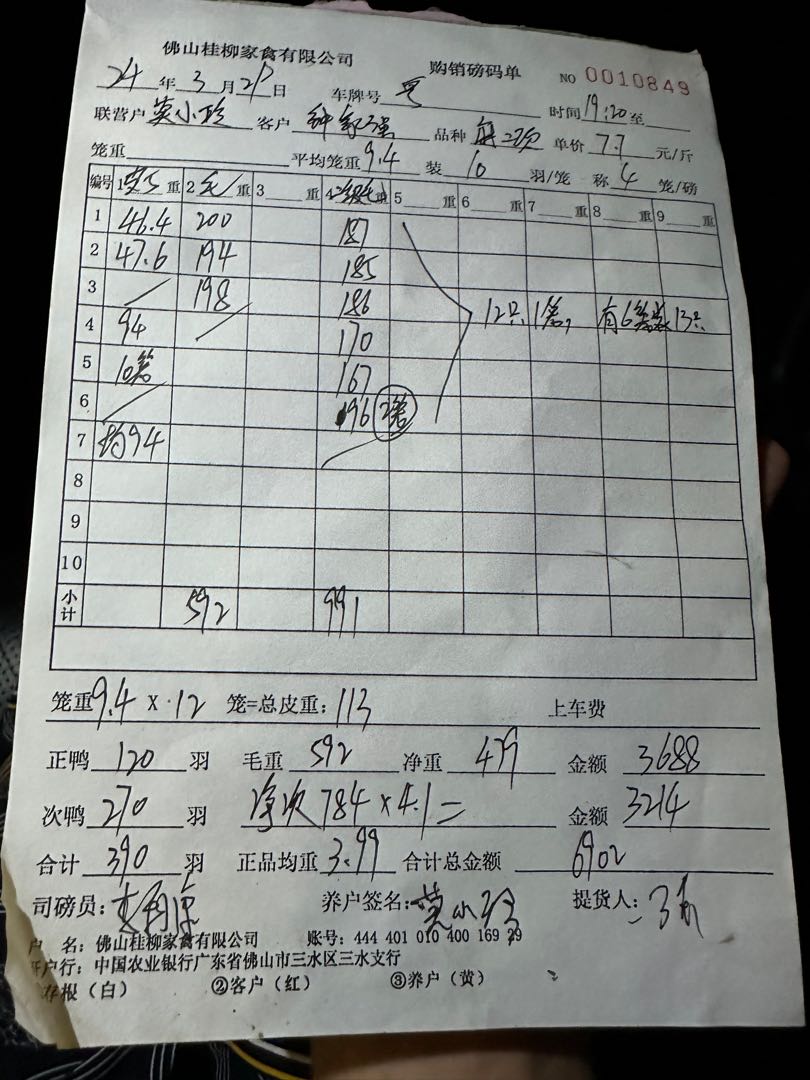 佛山桂柳家禽有限公司 购销磅码单 NO 0010849
24 年 3 月 21 日 车牌号 粤 时间 19:20 至
联营户 莫小玲 客户 钟 强 品种 单价 7.7 元/斤
笼重 平均笼重 9.4 装 10 羽/笼 称 4 笼/磅
编号 1 重 2 毛 重 3 重 4 重 5 重 6 重 7 重 8 重 9 重
1 46.4 200 187
2 47.6 194 185
3 198 186 12只1笼, 有6笼装13只
4 94 170
5 10笼 167
6 196 2笼
7 均94
8
9
10
小计 592 991
笼重 9.4 × 12 笼=总皮重: 113 上车费
正鸭 120 羽 毛重 592 净重 479 金额 3688
次鸭 270 羽 净次 784 × 4.1 = 金额 3214
合计 390 羽 正品均重 3.99 合计总金额 6902
司磅员: 养户签名: 莫小玲 提货人:
户 名: 佛山桂柳家禽有限公司 账号: 444 401 010 400 169 29
开户行: 中国农业银行广东省佛山市三水区三水支行
存根（白） ②客户（红） ③养户（黄）